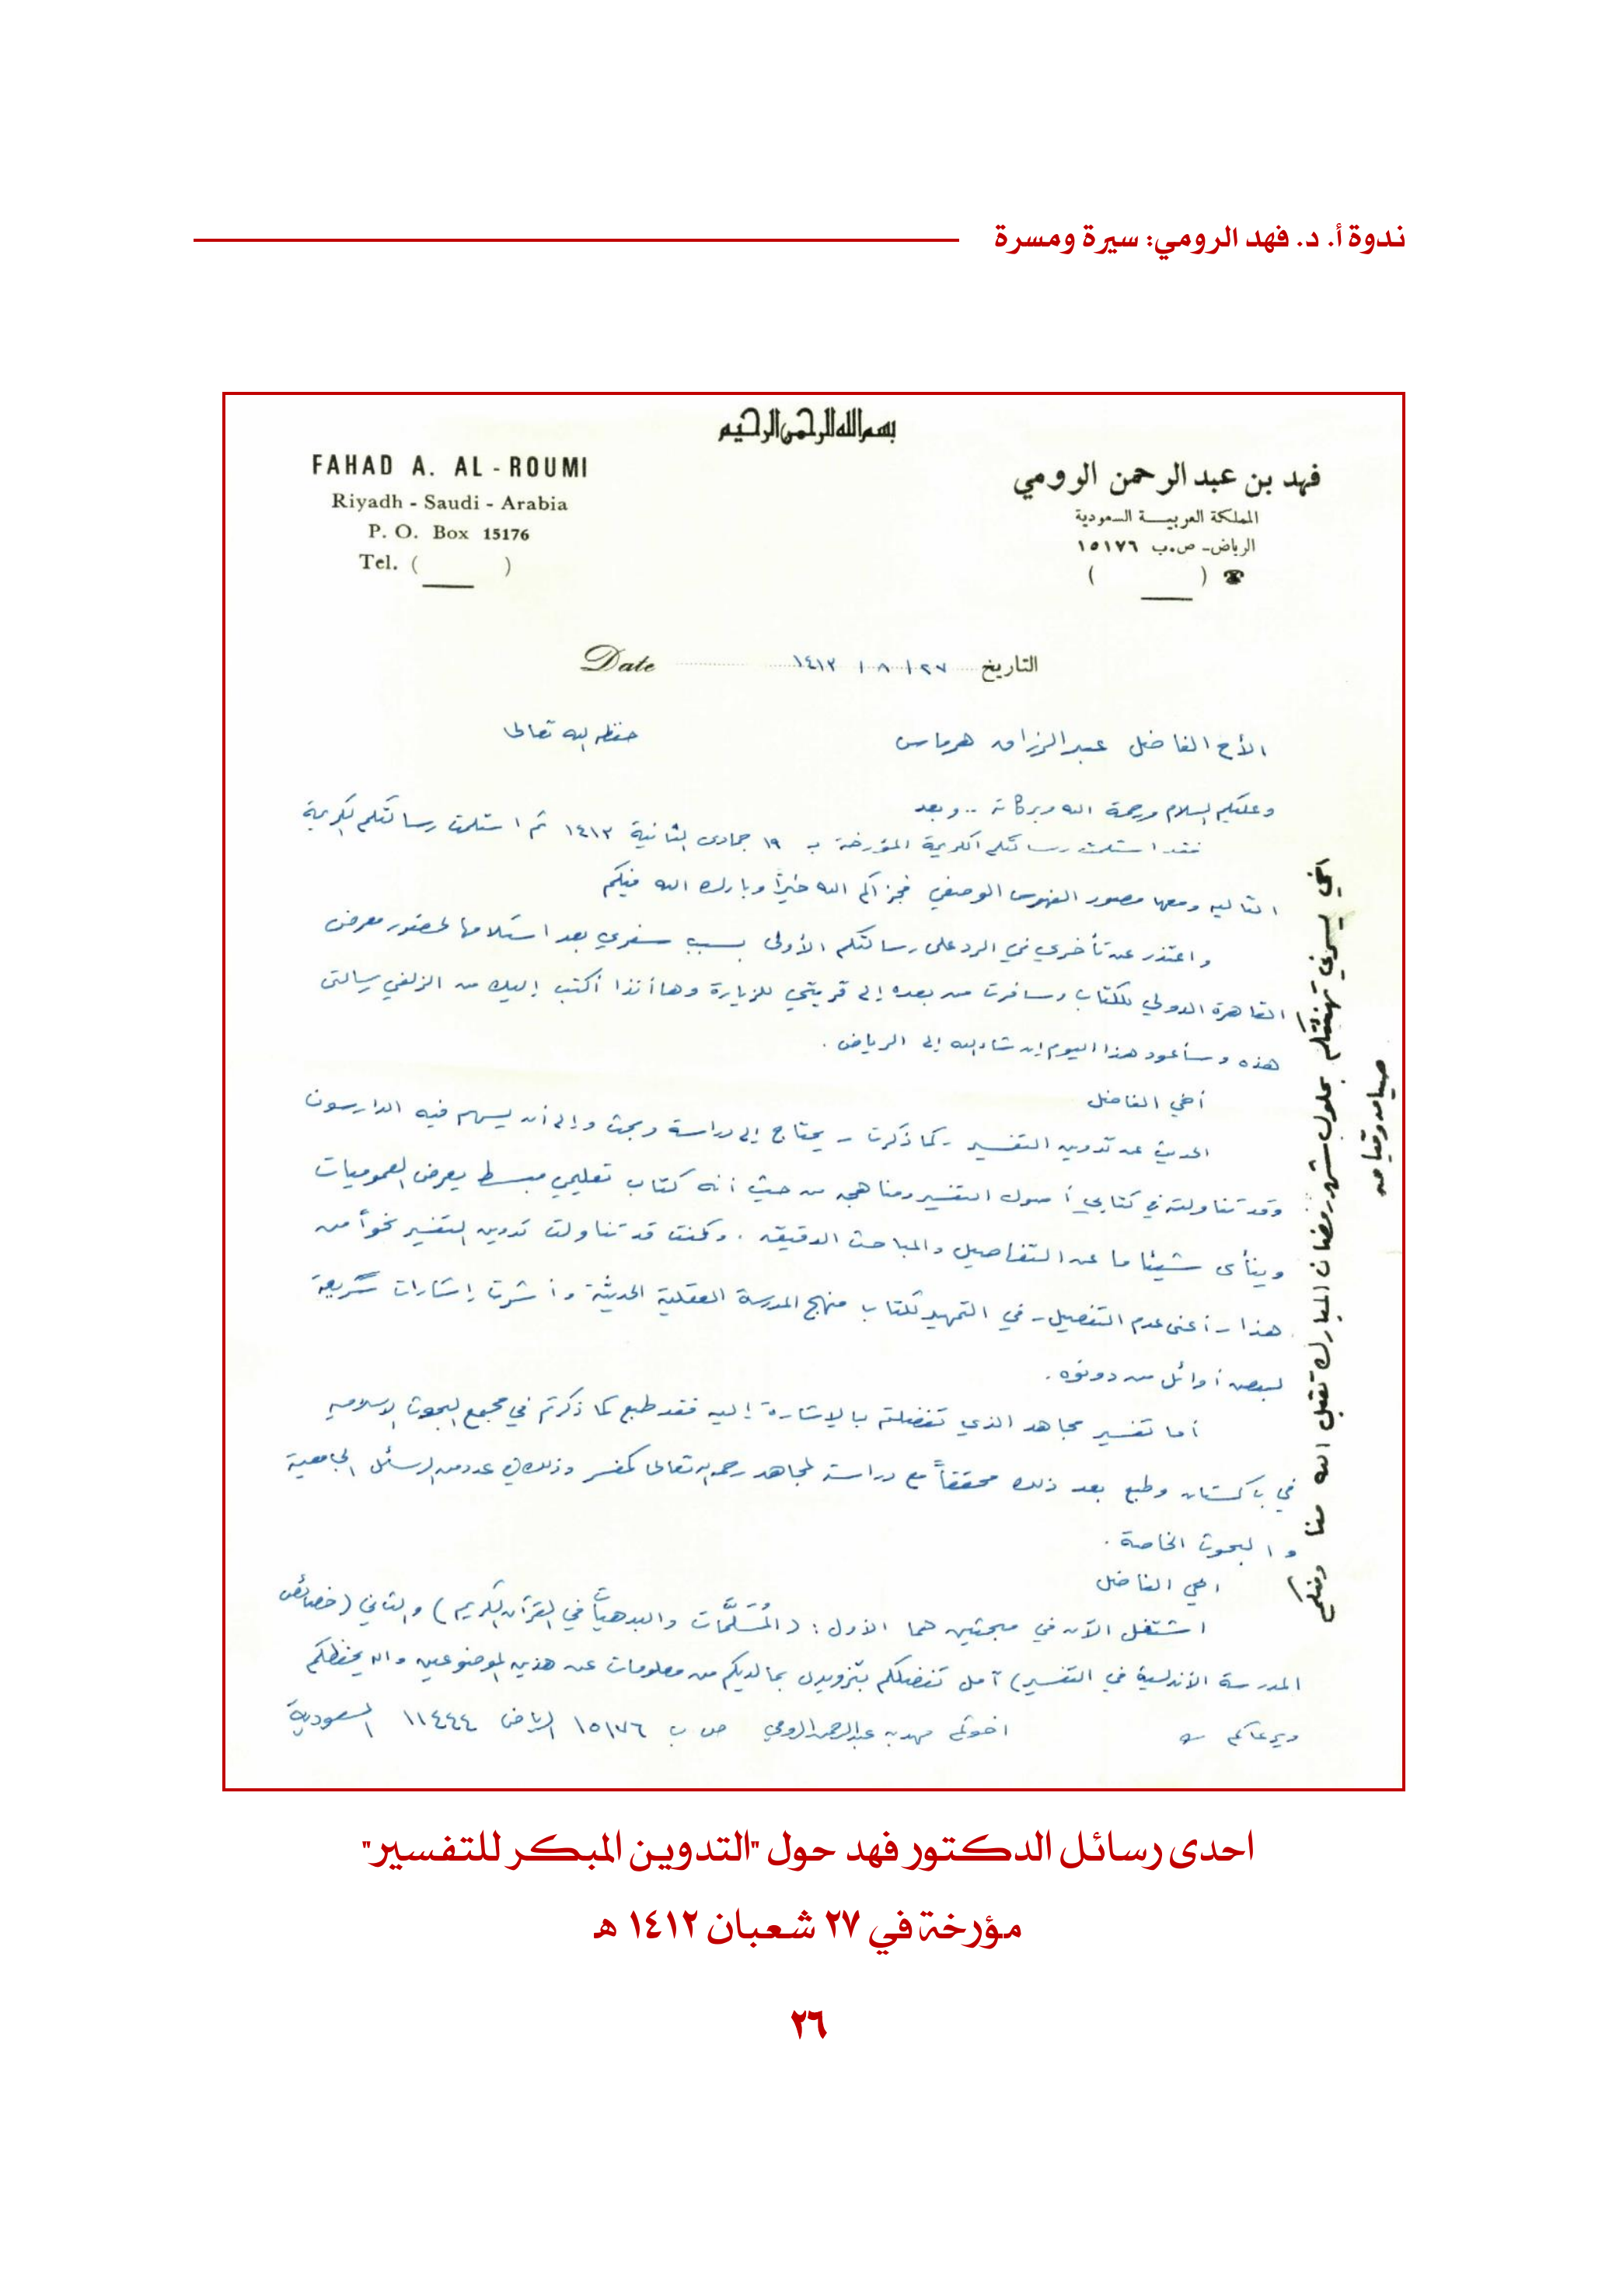 ندوة أ. د. فهد الرومي: سيرة ومسرة
بسم الله الرحمن الرحيم
FAHAD A. AL - ROUMI
Riyadh - Saudi - Arabia
P. O. Box 15176
Tel. ( )
فهد بن عبد الرحمن الرومي
المملكة العربيـــة السعودية
الرياض - ص.ب ١٥١٧٦
☎ ( )
التاريخ ٢٧ / ٨ / ١٤١٢ Date
الأخ الفاضل عبدالرزاق هرماس حفظه الله تعالى
وعليكم السلام ورحمة الله وبركاته .. وبعد
فقد استلمت رسالتكم الكريمة المؤرخة بـ ١٩ جمادى الثانية ١٤١٢ ثم استلمت رسالتكم الكريمة
التالية ومعها مصور الفهرس الوصفي فجزاكم الله خيراً وبارك الله فيكم
واعتذر عن تأخري في الرد على رسالتكم الأولى بسبب سفري بعد استلامها لحضور معرض
القاهرة الدولي للكتاب وسافرت من بعده إلى قريتي للزيارة وها أنذا أكتب إليك من الزلفي رسالتي
هذه وسأعود هذا اليوم إن شاء الله إلى الرياض .
أخي الفاضل
الحديث عن تدوين التفسير - كما ذكرت - يحتاج إلى دراسة وبحث وإلى أن يسهم فيه الدارسون
وقد تناولته في كتابي أصول التفسير ومناهجه من حيث أنه كتاب تعليمي مبسط يعرض العموميات
وينأى شيئا ما عن التفاصيل والمباحث الدقيقة . وكنت قد تناولت تدوين التفسير نحواً من
هذا - أعني عدم التفصيل - في التمهيد لكتاب منهج المدرسة العقلية الحديثة وأشرت إشارات سريعة
لبعض أوائل من دونوه .
أما تفسير مجاهد الذي تفضلتم بالإشارة إليه فقد طبع كما ذكرتم في مجمع البحوث الإسلامية
في باكستان وطبع بعد ذلك محققاً مع دراسة لمجاهد رحمه الله تعالى كمفسر وذلك في عدد من الرسائل الجامعية
والبحوث الخاصة .
أخي الفاضل
اشتغل الآن في مبحثين هما الأول : (المُسَلَّمَات والبدهيات في القرآن الكريم) والثاني (خصائص
المدرسة الأندلسية في التفسير) آمل تفضلكم بتزويدي بما لديكم من معلومات عن هذين الموضوعين والله يحفظكم
ويرعاكم
اخوكم فهد بن عبدالرحمن الرومي ص ب ١٥١٧٦ الرياض ١١٤٤٤ السعودية
أخي يسرني تهنئتكم بحلول شهر رمضان المبارك تقبل الله منا ومنكم
صيامه وقيامه
احدى رسائل الدكتور فهد حول "التدوين المبكر للتفسير"
مؤرخة في ٢٧ شعبان ١٤١٢ هـ
٢٦